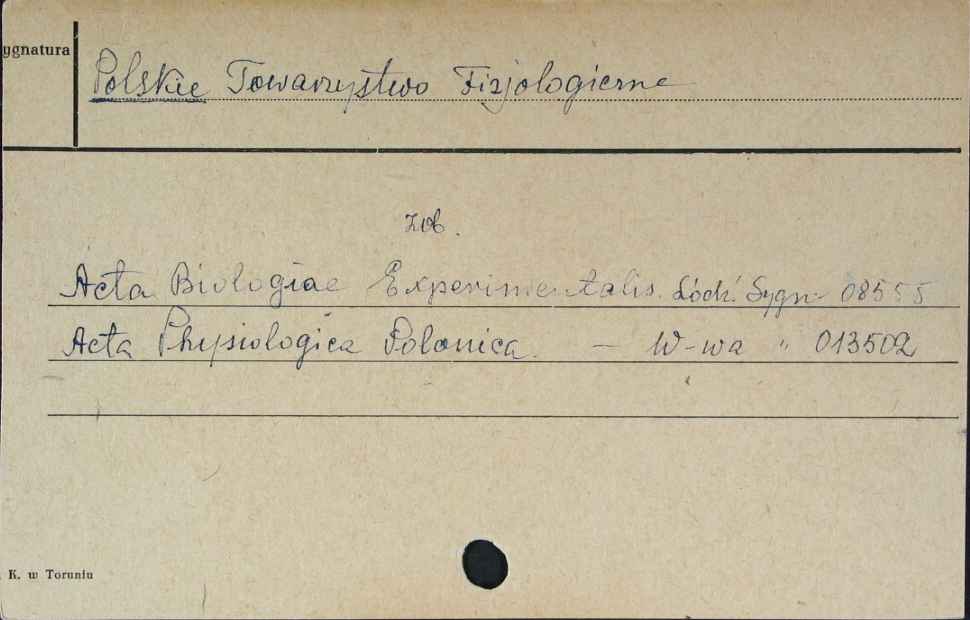 ygnatura
Polskie Towarzystwo Fizjologiczne
zob.
Acta Biologiae Experimentalis. Łódź. Sygn. 08555
Acta Physiologica Polonica. — W-wa " 013502
K. w Toruniu